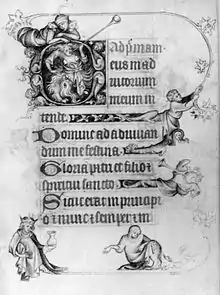 Ad p͛mam
eus in ad
iutorium
meum in
tende
Domine ad adiuuan
dum me festina
Gloria patri et filio et
spiritui sancto
Sicut erat in principi
o et nunc et semper et in